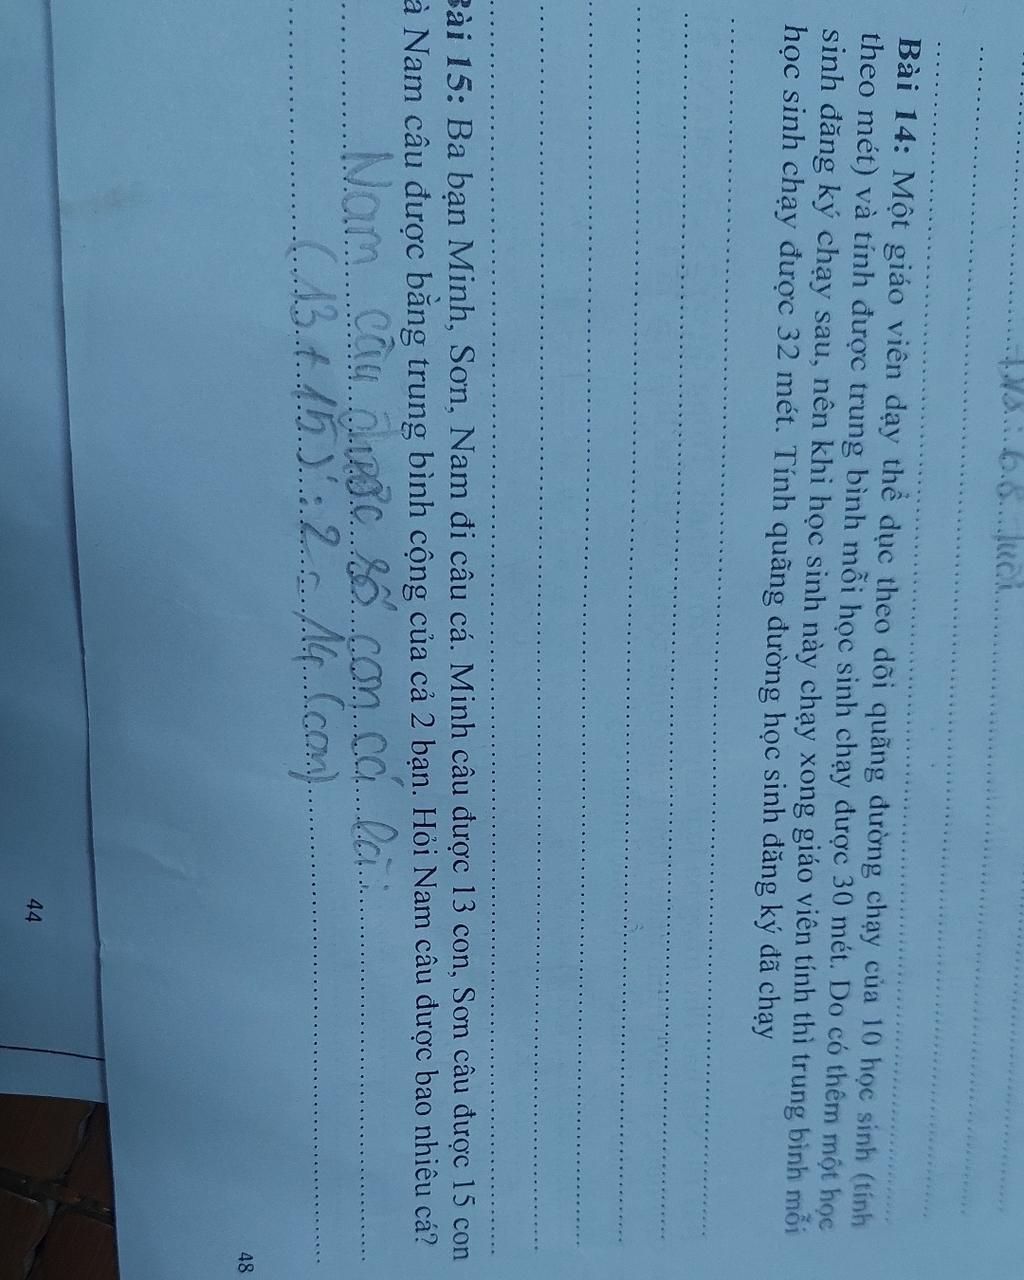 Bài 14: Một giáo viên dạy thể dục theo dõi quãng đường chạy của 10 học sinh (tính
theo mét) và tính được trung bình mỗi học sinh chạy được 30 mét. Do có thêm một học
sinh đăng ký chạy sau, nên khi học sinh này chạy xong giáo viên tính thì trung bình mỗi
học sinh chạy được 32 mét. Tính quãng đường học sinh đăng ký đã chạy
Bài 15: Ba bạn Minh, Sơn, Nam đi câu cá. Minh câu được 13 con, Sơn câu được 15 con
à Nam câu được bằng trung bình cộng của cả 2 bạn. Hỏi Nam câu được bao nhiêu cá?
Nam câu được số con cá là:
(13 + 15) : 2 = 14 (con)
48
44